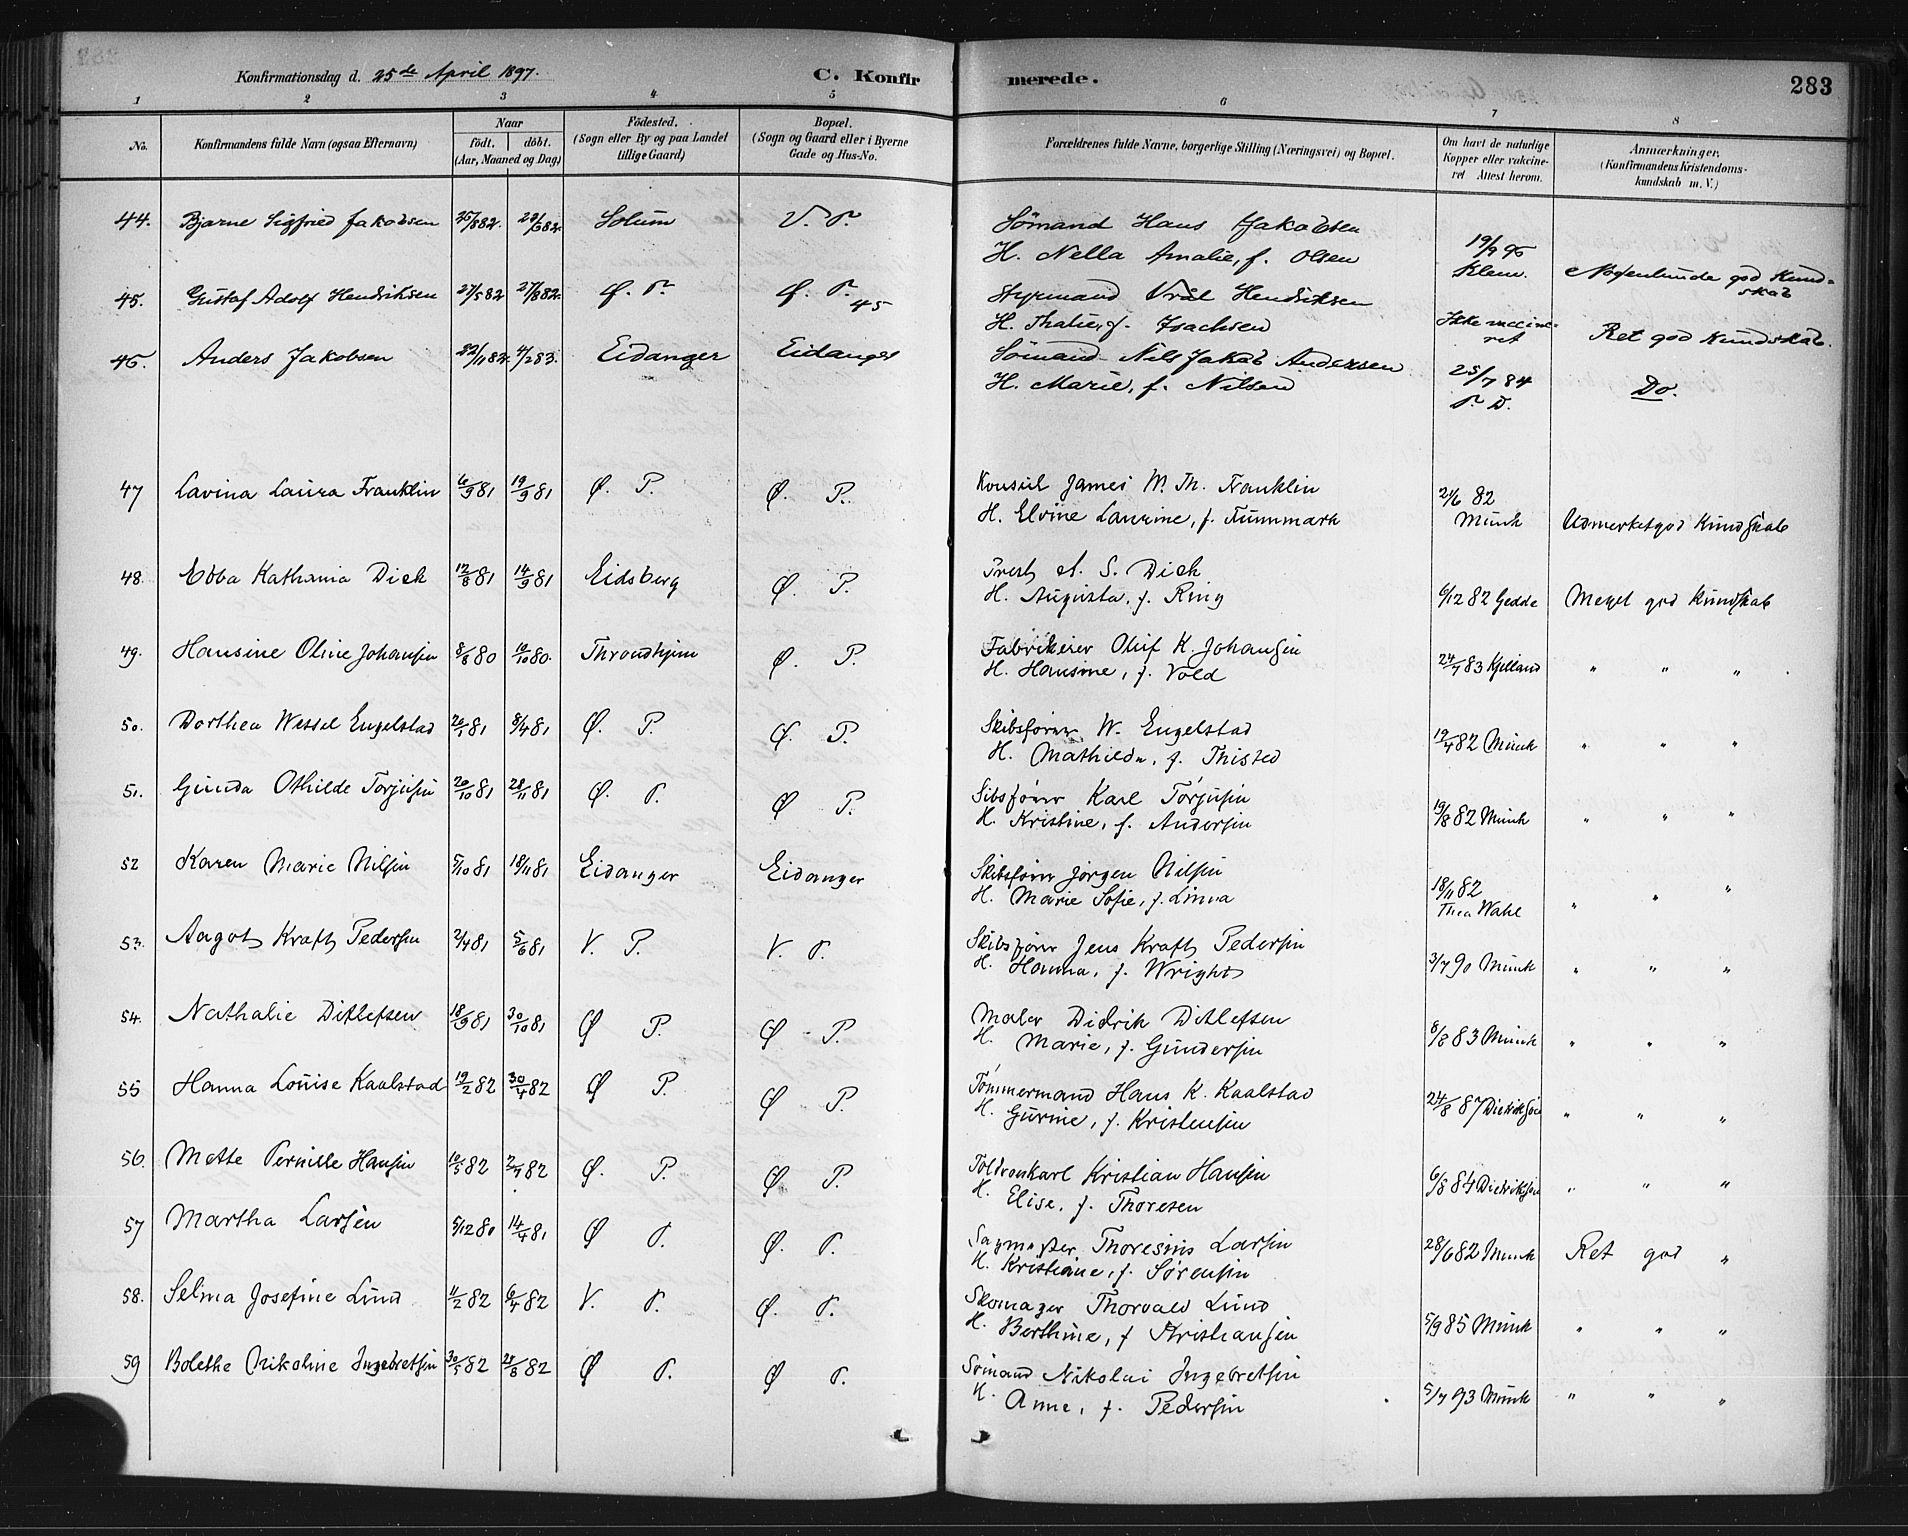 Konfirmationsdag d. 25de April 1897.
C. Konfir
merede.
283
1 2 3 4 5 6 7 8
No.
Konfirmandens fulde Navn (ogsaa Efternavn)
Naar
födt. döbt.
(Aar, Maaned og Dag)
Födested.
(Sogn eller By og paa Landet
tillige Gaard)
Bopæl.
(Sogn og Gaard eller i Byerne
Gade og Hus-No.
Forældrenes fulde Navne, borgerlige Stilling (Næringsvei) og Bopæl.
Om havt de naturlige
Kopper eller vakcine-
ret Attest herom.
Anmærkninger,
(Konfirmandens Kristendoms-
kundskab m. V.)
44. Bjarne Sigfried Jakobsen Solum V. P. Sömand Hans Jakobsen
H. Nella Amalie, f. Olsen 19/9 95
Klem. Nogenlunde god Kund-
skab
45. Gustaf Adolf Hendriksen 27/5 82 27/8 82. Ø. P. Ø. P. 45 Styrmand Vrål Hendriksen
H. Thalie, f. Isachsen Ikke vaccine-
ret Ret god Kundskab.
46. Anders Jakobsen 22/11 82. 4/2 83. Eidanger Eidanger Sömand Nils Jakob Andersen
H. Marie, f. Nilsen 25/7 84
P. D. Do.
47 Lavina Laura Franklin 6/9 81 19/9 81 Ø. P. Ø. P. Konsul James W. Th. Franklin
H. Elvine Laurine, f. Funnmark 21/6 82
Munk Udmerket god Kundskab
48. Ebba Kathinia Dick 12/8 81 14/9 81 Eidsberg Ø. P. Prest A. S. Dick
H. Augusta, f. Ring 6/12 82 Gedde Meget god Kundskab
49. Hansine Oline Johansen 8/8 80 10/10 80. Throndhjem Ø. P. Fabrikeier Oluf K. Johansen
H. Hansine, f. Vold 24/7 83 Kjelland " " "
50. Dorthea Wessel Engelstad 26/1 81 8/4 81 Ø. P. Ø. P. Skibsfører W. Engelstad
H. Mathilda, f. Thisted 19/4 82 Munk " " "
51. Gunda Othilde Torjusen 20/10 81 28/11 81 Ø. P. Ø P. Sibsfører Karl Torjusen
H. Kristine, f. Andersen 19/8 82 Munk " " "
52 Karen Marie Nilsen 5/10 81 18/11 81 Eidanger Eidanger Skibsfører Jørgen Nilsen
H. Marie Sofie, f. Linna 18/11 82
Thea Wahl " " "
53. Aagot Kraft Pedersen 2/4 81 5/6 81 V. P. V. P. Skibsfører Jens Kraft Pedersen
H. Hanna, f. Wright 3/7 90 Munk " " "
54. Nathalie Ditlefsen 18/9 81 30/10 81 Ø P. Ø P. Maler Didrik Ditlefsen
H. Marie, f. Gundersen 8/8 83 Munk " " "
55 Hanna Louise Kaalstad 19/2 82 30/4 82 Ø P. Ø P. Tømmermand Hans K. Kaalstad
H. Gurine, f. Kristensen 24/8 87 Diedriksen " " "
56. Mette Pernille Hansen 10/5 82 2/7 82 Ø. P. Ø P. Toldrorkarl Kristian Hansen
H. Elise, f. Thoresen 6/8 84 Diedriksen " " "
57 Martha Larsen 5/12 80 14/4 81 Ø P. Ø. P. Sagmester Thoresius Larsen
H. Kristiane, f. Sørensen 28/6 82 Munk Ret god "
58. Selma Josefine Lund 11/2 82 6/4 82 V. P. Ø. P. Skomager Thorvald Lund
H. Berthine, f Kristiansen 5/9 85 Munk " " "
59 Bolethe Nikoline Ingebretsen 30/5 82 25/8 82 Ø P. Ø P. Sømand Nikolai Ingebretsen
H. Anne, f. Pedersen 5/7 93 Munk " " "